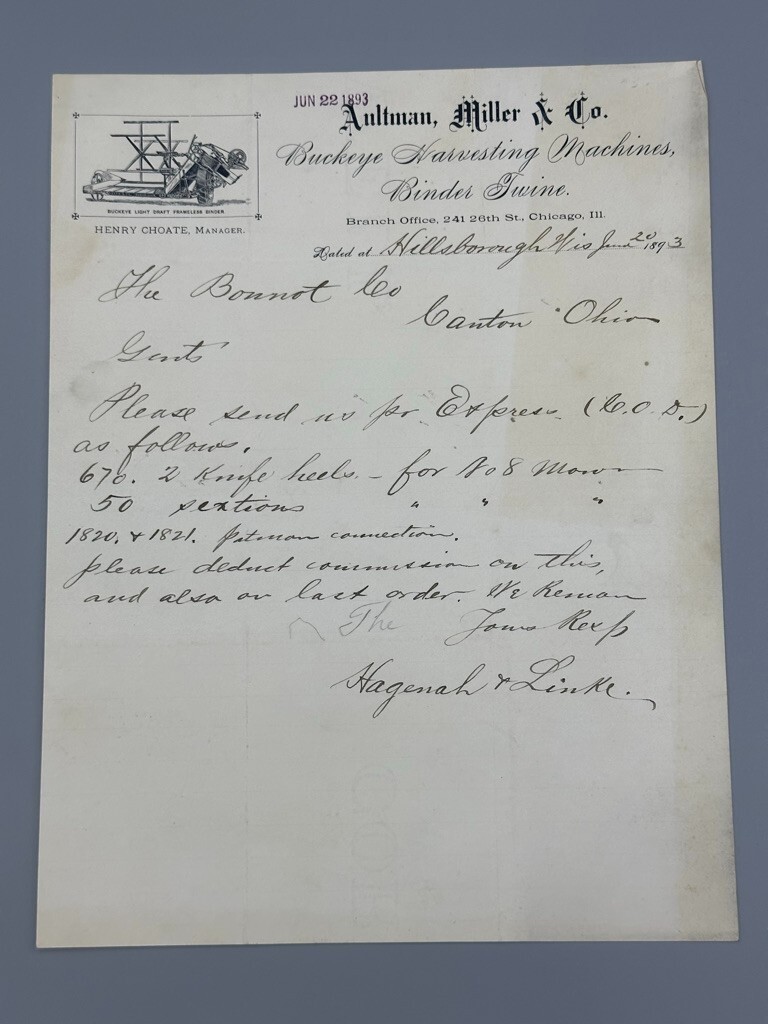 JUN 22 1893
Aultman, Miller & Co.
Buckeye Harvesting Machines,
Binder Twine.
BUCKEYE LIGHT DRAFT FRAMELESS BINDER.
HENRY CHOATE, MANAGER.
Branch Office, 241 26th St., Chicago, Ill.
Dated at Hillsborough Wis June 20 1893
The Bonnot Co
Canton Ohio
Gents
Please send us pr Express (C.O.D.)
as follows.
670. 2 Knife heels. - for No 8 Mower
50 sextions " " "
1820. & 1821. pitman connection.
please deduct commission on this,
and also on last order. We Remain
The Yours Resp
Hagenah & Linke.